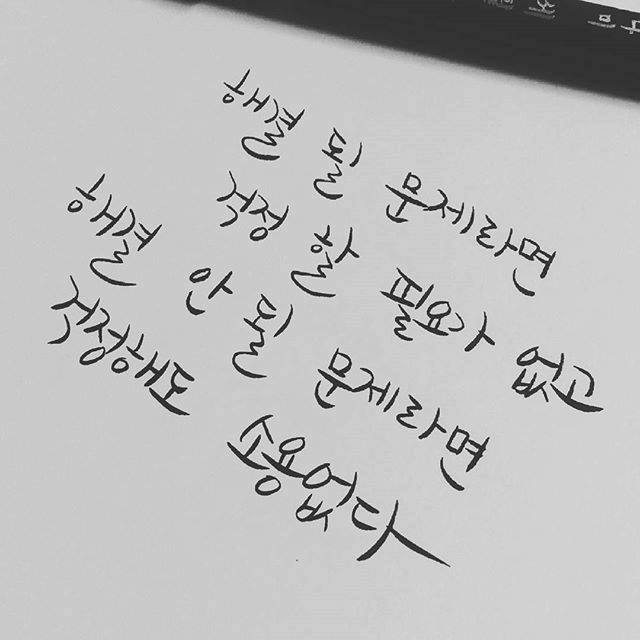 해결 될 문제라면
걱정 할 필요가 없고
해결 안 될 문제라면
걱정해도
소용없다